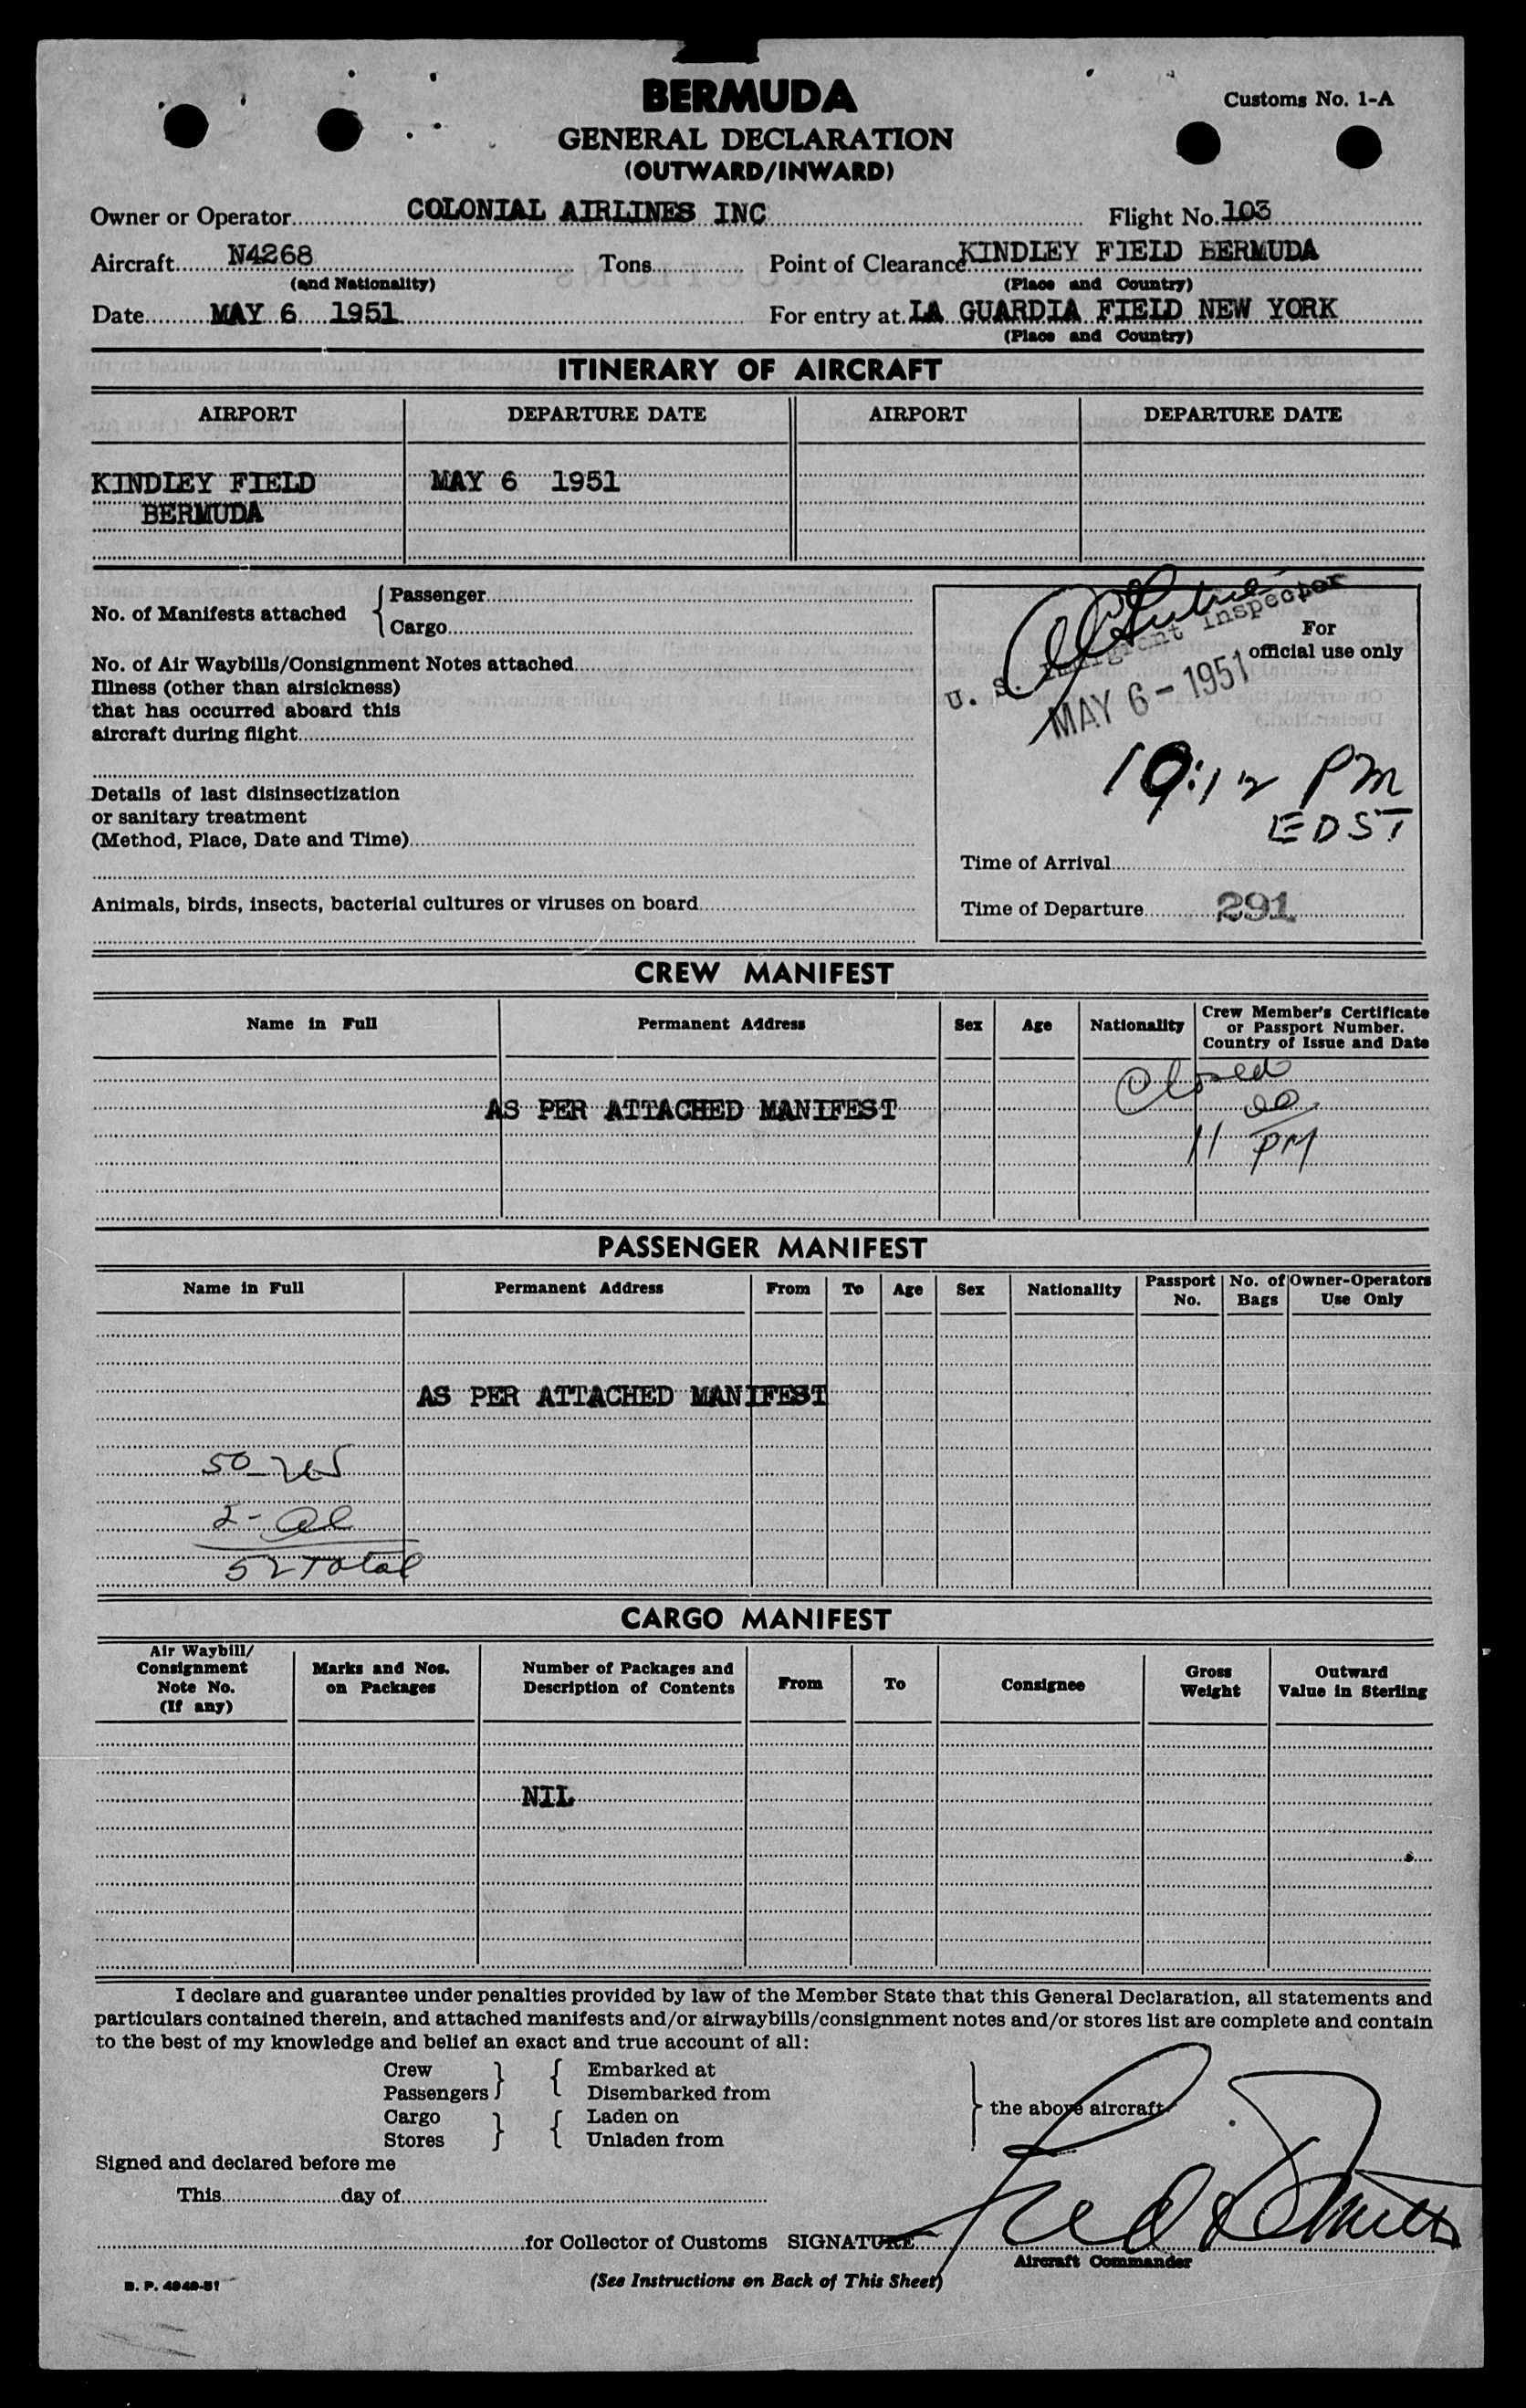 BERMUDA
Customs No. 1-A
GENERAL DECLARATION
(OUTWARD/INWARD)
Owner or Operator COLONIAL AIRLINES INC Flight No. 103
Aircraft N4268 Tons Point of Clearance KINDLEY FIELD BERMUDA
(and Nationality) (Place and Country)
Date MAY 6 1951 For entry at LA GUARDIA FIELD NEW YORK
(Place and Country)
ITINERARY OF AIRCRAFT
AIRPORT DEPARTURE DATE AIRPORT DEPARTURE DATE
KINDLEY FIELD MAY 6 1951
BERMUDA
No. of Manifests attached { Passenger
Cargo
No. of Air Waybills/Consignment Notes attached
Illness (other than airsickness)
that has occurred aboard this
aircraft during flight
Details of last disinsectization
or sanitary treatment
(Method, Place, Date and Time)
Animals, birds, insects, bacterial cultures or viruses on board
For
official use only
U. S. Immigrant Inspector
MAY 6 - 1951
10:12 PM
EDST
Time of Arrival
Time of Departure 291
CREW MANIFEST
Name in Full Permanent Address Sex Age Nationality Crew Member's Certificate
or Passport Number.
Country of Issue and Date
Closed
AS PER ATTACHED MANIFEST
11 00 PM
PASSENGER MANIFEST
Name in Full Permanent Address From To Age Sex Nationality Passport No. No. of Bags Owner-Operators Use Only
AS PER ATTACHED MANIFEST
50 - US
2 - Al
52 Total
CARGO MANIFEST
Air Waybill/
Consignment
Note No.
(If any)
Marks and Nos.
on Packages
Number of Packages and
Description of Contents
From To Consignee
Gross
Weight
Outward
Value in Sterling
NIL
I declare and guarantee under penalties provided by law of the Member State that this General Declaration, all statements and
particulars contained therein, and attached manifests and/or airwaybills/consignment notes and/or stores list are complete and contain
to the best of my knowledge and belief an exact and true account of all:
Crew } { Embarked at
Passengers Disembarked from
} the above aircraft
Cargo } { Laden on
Stores Unladen from
Signed and declared before me
This day of
for Collector of Customs SIGNATURE
Aircraft Commander
B. P. 4940-51
(See Instructions on Back of This Sheet)